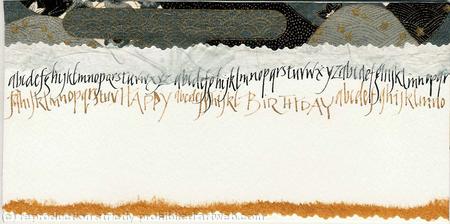 abcdefghijklmnopqrstuvwxyz abcdefghijklmnopqrstuvwxyzabcdefghijklmnopqr
fghijklmnopqrstuv HAPPY abcdefghijkl BIRTHDAY abcdefghijklmno